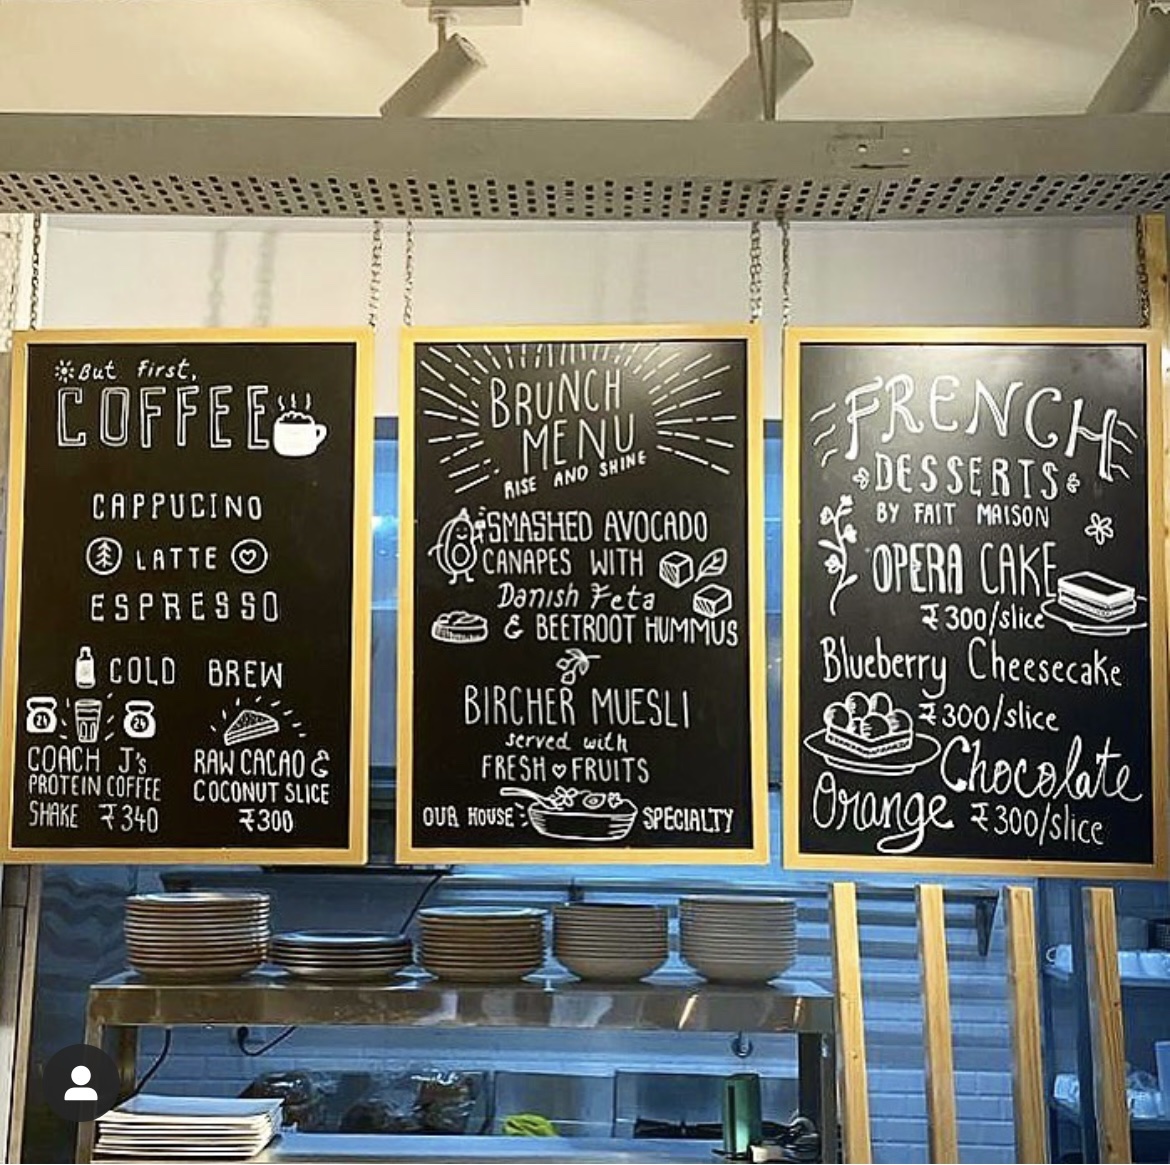 But first,
COFFEE
CAPPUCINO
LATTE
ESPRESSO
COLD BREW
24 24
COACH J's
PROTEIN COFFEE
SHAKE ₹340
RAW CACAO &
COCONUT SLICE
₹300
BRUNCH
MENU
RISE AND SHINE
SMASHED AVOCADO
CANAPES WITH
Danish Feta
& BEETROOT HUMMUS
BIRCHER MUESLI
served with
FRESH ♡ FRUITS
OUR HOUSE SPECIALTY
FRENCH
DESSERTS
BY FAIT MAISON
OPERA CAKE
₹300/slice
Blueberry Cheesecake
₹300/slice
Chocolate
Orange ₹300/slice